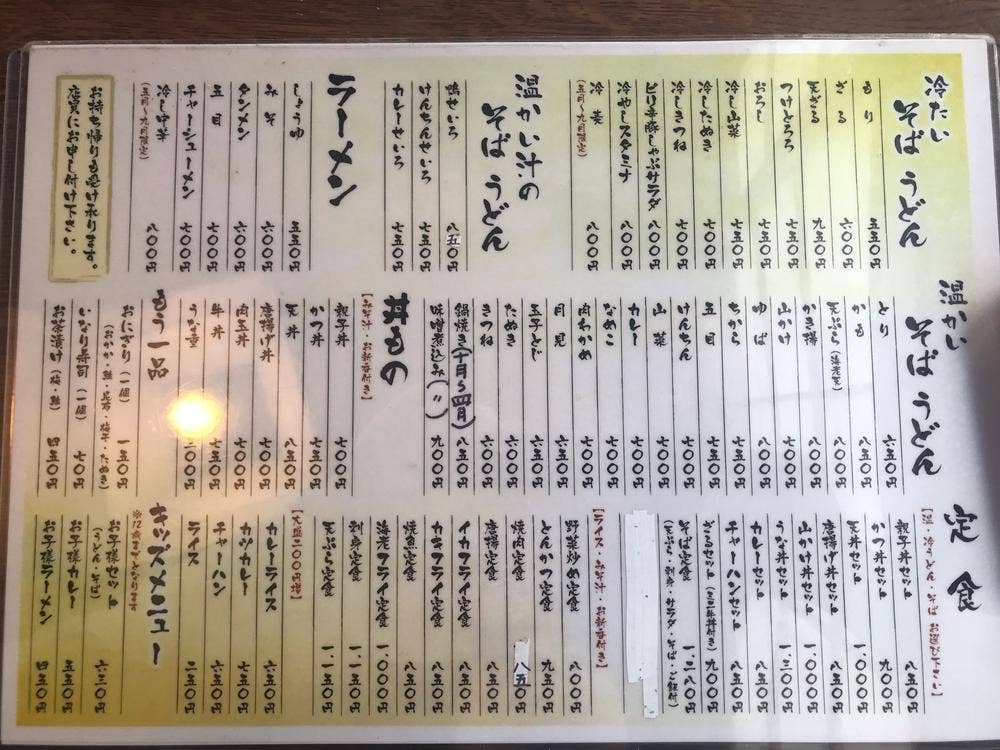 冷たい
そば うどん
もり 五五〇円
ざる 六〇〇円
天ざる 九五〇円
つけとろろ 七五〇円
おろし 七五〇円
冷し山菜 七五〇円
冷したぬき 七〇〇円
冷しきつね 七〇〇円
ピリ辛豚しゃぶサラダ 八〇〇円
冷やしスタミナ 八〇〇円
冷麦 八〇〇円
(五月~九月限定)
温かい汁の
そば うどん
鴨せいろ 八五〇円
けんちんせいろ 七五〇円
カレーせいろ 七五〇円
ラーメン
しょうゆ 五五〇円
みそ 六〇〇円
タンメン 七〇〇円
五目 七〇〇円
チャーシューメン 七〇〇円
冷し中華 八〇〇円
(五月~九月限定)
お持ち帰りも受け承ります。
店員にお申し付け下さい。
温かい
そば うどん
とり 六五〇円
かも 八〇〇円
天ぷら(海老天) 八〇〇円
かき揚 八〇〇円
山かけ 七〇〇円
ゆば 八〇〇円
ちから 七〇〇円
五目 七五〇円
けんちん 七〇〇円
山菜 七〇〇円
カレー 七〇〇円
なめこ 七〇〇円
肉わかめ 七〇〇円
月見 六〇〇円
玉子とじ 六五〇円
たぬき 六〇〇円
きつね 六〇〇円
鍋焼き(十月~四月) 八五〇円
味噌煮込み(〃) 九〇〇円
丼もの
【み汁・お新香付き】
親子丼 七〇〇円
かつ丼 七五〇円
天丼 八五〇円
唐揚げ丼 七〇〇円
肉玉丼 七〇〇円
牛丼 七五〇円
うな重
もう一品
おにぎり(一個) 一五〇円
(おかか・鮭・昆布・梅干・たぬき)
いなり寿司(一個) 七〇円
お茶漬け(梅・鮭) 四五〇円
定食
親子丼セット 八五〇円
かつ丼セット 九〇〇円
天丼セット 一、〇〇〇円
唐揚げ丼セット 八五〇円
山かけ丼セット 一、〇〇〇円
うな丼セット 一、三〇〇円
カレーセット 八五〇円
チャーハンセット 八五〇円
ざるセット(ミニ丼付き) 九〇〇円
そば定食 一、三八〇円
(天ぷら・刺身・サラダ・そば・ご飯付)
【ライス・みそ汁・お新香付き】
野菜炒め定食 八〇〇円
とんかつ定食 九五〇円
焼肉定食 八五
唐揚定食 八〇〇円
イカフライ定食 八五〇円
カキフライ定食 八五〇円
焼魚定食 八〇〇円
海老フライ定食 一、〇〇〇円
刺身定食 一、一五〇円
天ぷら定食 一、一五〇円
【大盛二〇〇円増】
カレーライス 六五〇円
カツカレー 七五〇円
チャーハン 六五〇円
ライス 二五〇円
キッズメニュー
※12歳までとなります
お子様セット 六三〇円
(うどん・そば)
お子様カレー 五五〇円
お子様ラーメン 四五〇円